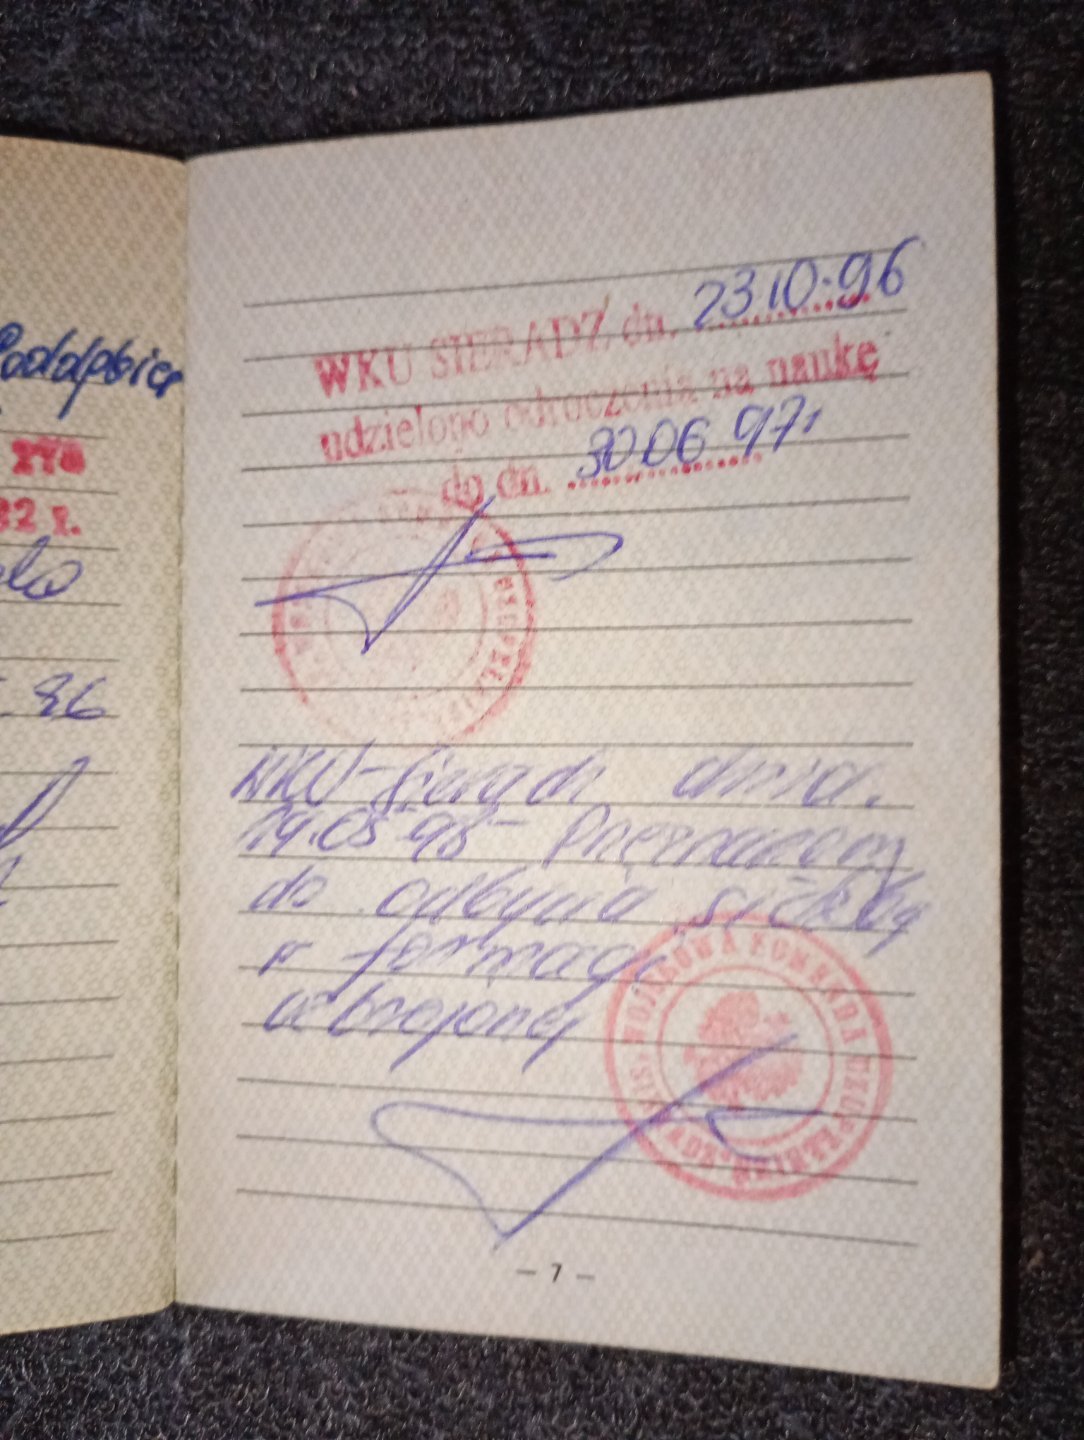 278
32 r.
86
WKU SIERADZ dn. 23 10.96
udzielono odroczenia na naukę
do dn. 30 06 97r
WKU - Sieradz dnia.
19.05 98 - Przeznaczony
do odbycia służby
w formacji
uzbrojonej
WOJSKOWA KOMENDA UZUPEŁNIEŃ
— 7 —